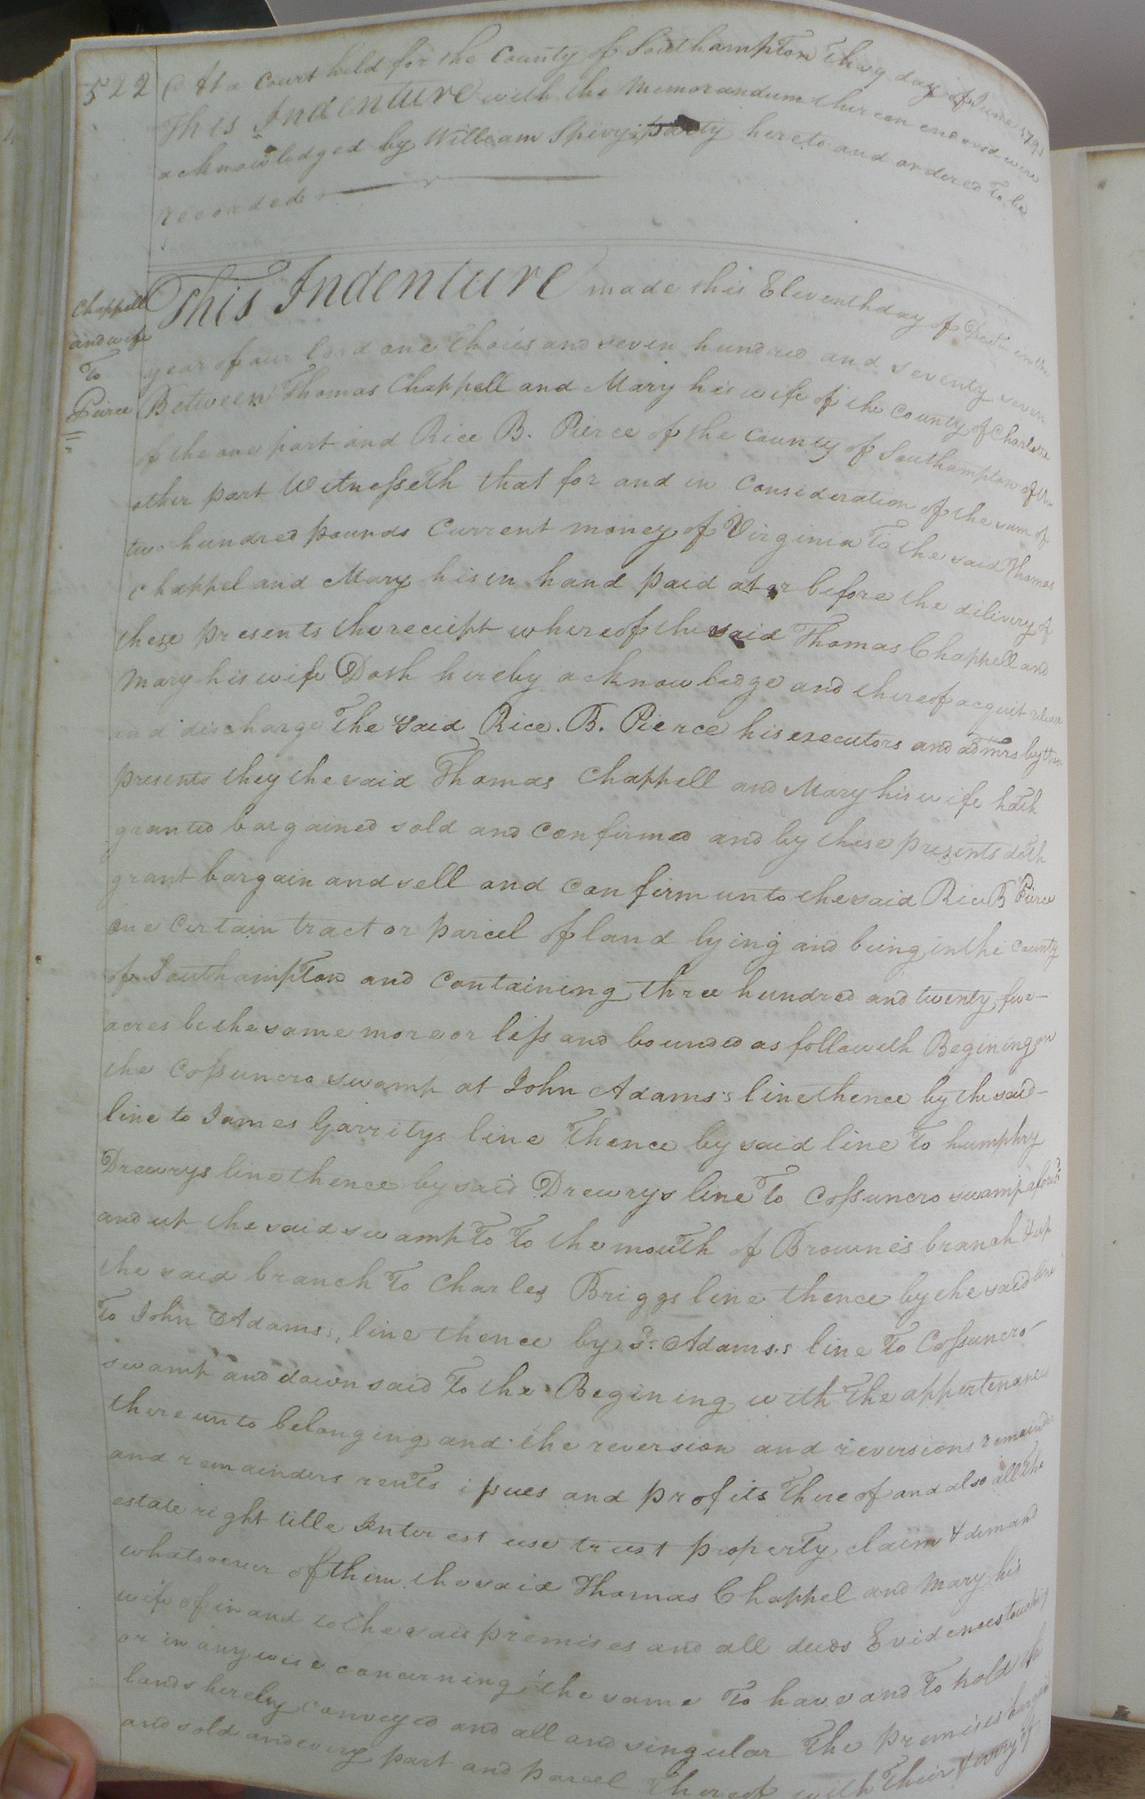 522 @ At a Court held for the County of Southampton the 9 day of June 1791
This Indenture with the Memorandum thereon endorsed were
acknowledged by William Spivy party hereto and ordered to be
recorded
Chappell
and wife
To
Pierce
This Indenture made this Eleventh day of in the
year of our lord one thousand seven hundred and seventy seven
Between Thomas Chappell and Mary his wife of the County of
of the one part and Rice B. Pierce of the County of Southampton of the
other part Witnesseth that for and in Consideration of the sum of
two hundred pounds Current money of Virginia To the said Thomas
Chappel and Mary his in hand paid at or before the dilivery of
these presents the receipt whereof the said Thomas Chappell and
Mary his wife Doth hereby acknowledge and thereof acquit
and discharge The said Rice. B. Pierce his executors and admrs by these
presents they the said Thomas Chappell and Mary his wife hath
granted bargained sold and confirmed and by these presents doth
grant bargain and sell and confirm unto the said Rice B Pierce
one Certain tract or parcel of land lying and being in the County
of Southampton and Containing three hundred and twenty five
acres be the same more or less and bounded as followith Begining on
the Cossuncro swamp at John Adams's line thence by the said
line to James Garritys line Thence by said line To humphry
Drewrys line thence by said Drewrys line To Cossuncro swamp aforsd
and up the said swamp To To the mouth of Browne's branch & up
the said branch To Charles Briggs line thence by the said line
To John Adams's, line thence by sd. Adams's line To Cossuncro
swamp and down said To the Begining with The appertenances
there unto belonging and the reversion and reversions remainder
and remainders rents issues and profits Thereof and also all The
estate right title Interest use trust property, claim & demand
whatsoever of them the said Thomas Chappel and Mary his
wife of in and to the said premises and all deeds Evidences touching
or in any wise concerning the same To have and To hold the
lands hereby conveyed and all and singular The premises bargained
and sold and every part and parcel Thereof with Their & every of